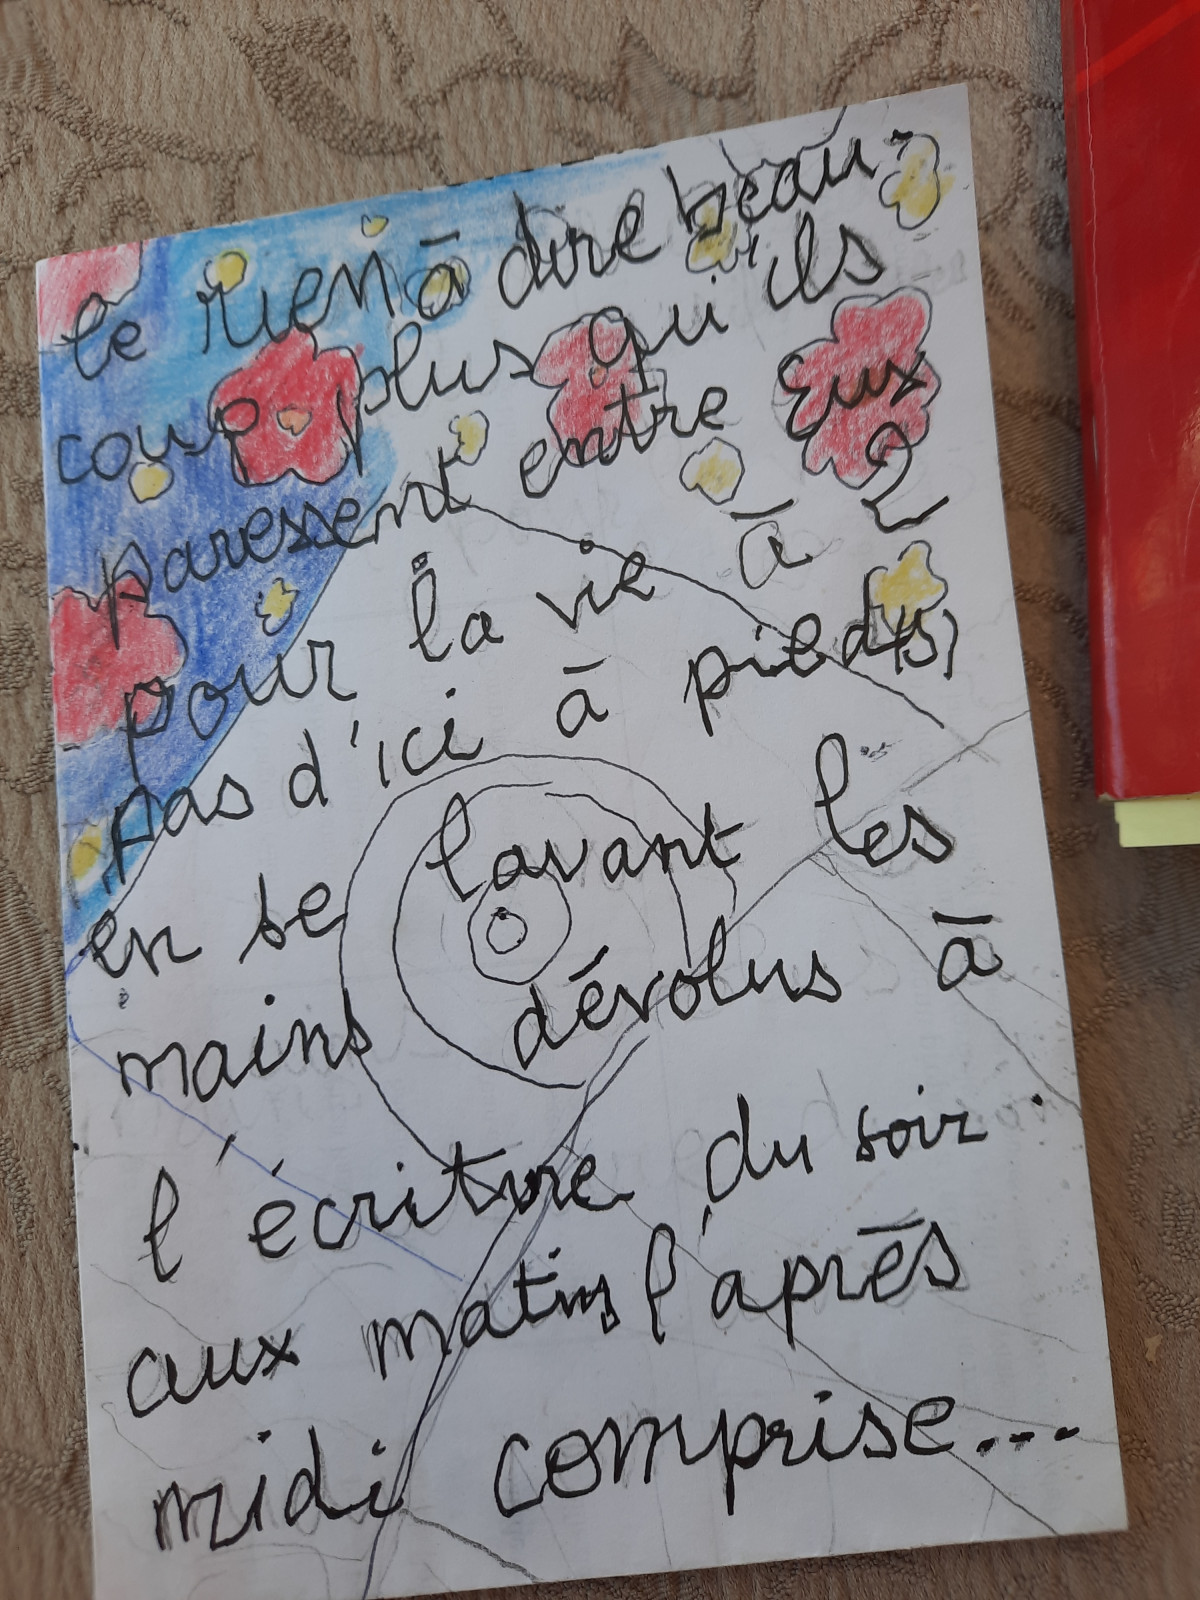 le rien à dire beau-
coup plus qu'ils
paressent entre Eux
pour la vie à 2
pas d'ici à pied(s)
en se lavant les
mains dévolus à
l'écriture du soir
aux matins l'après
midi comprise...